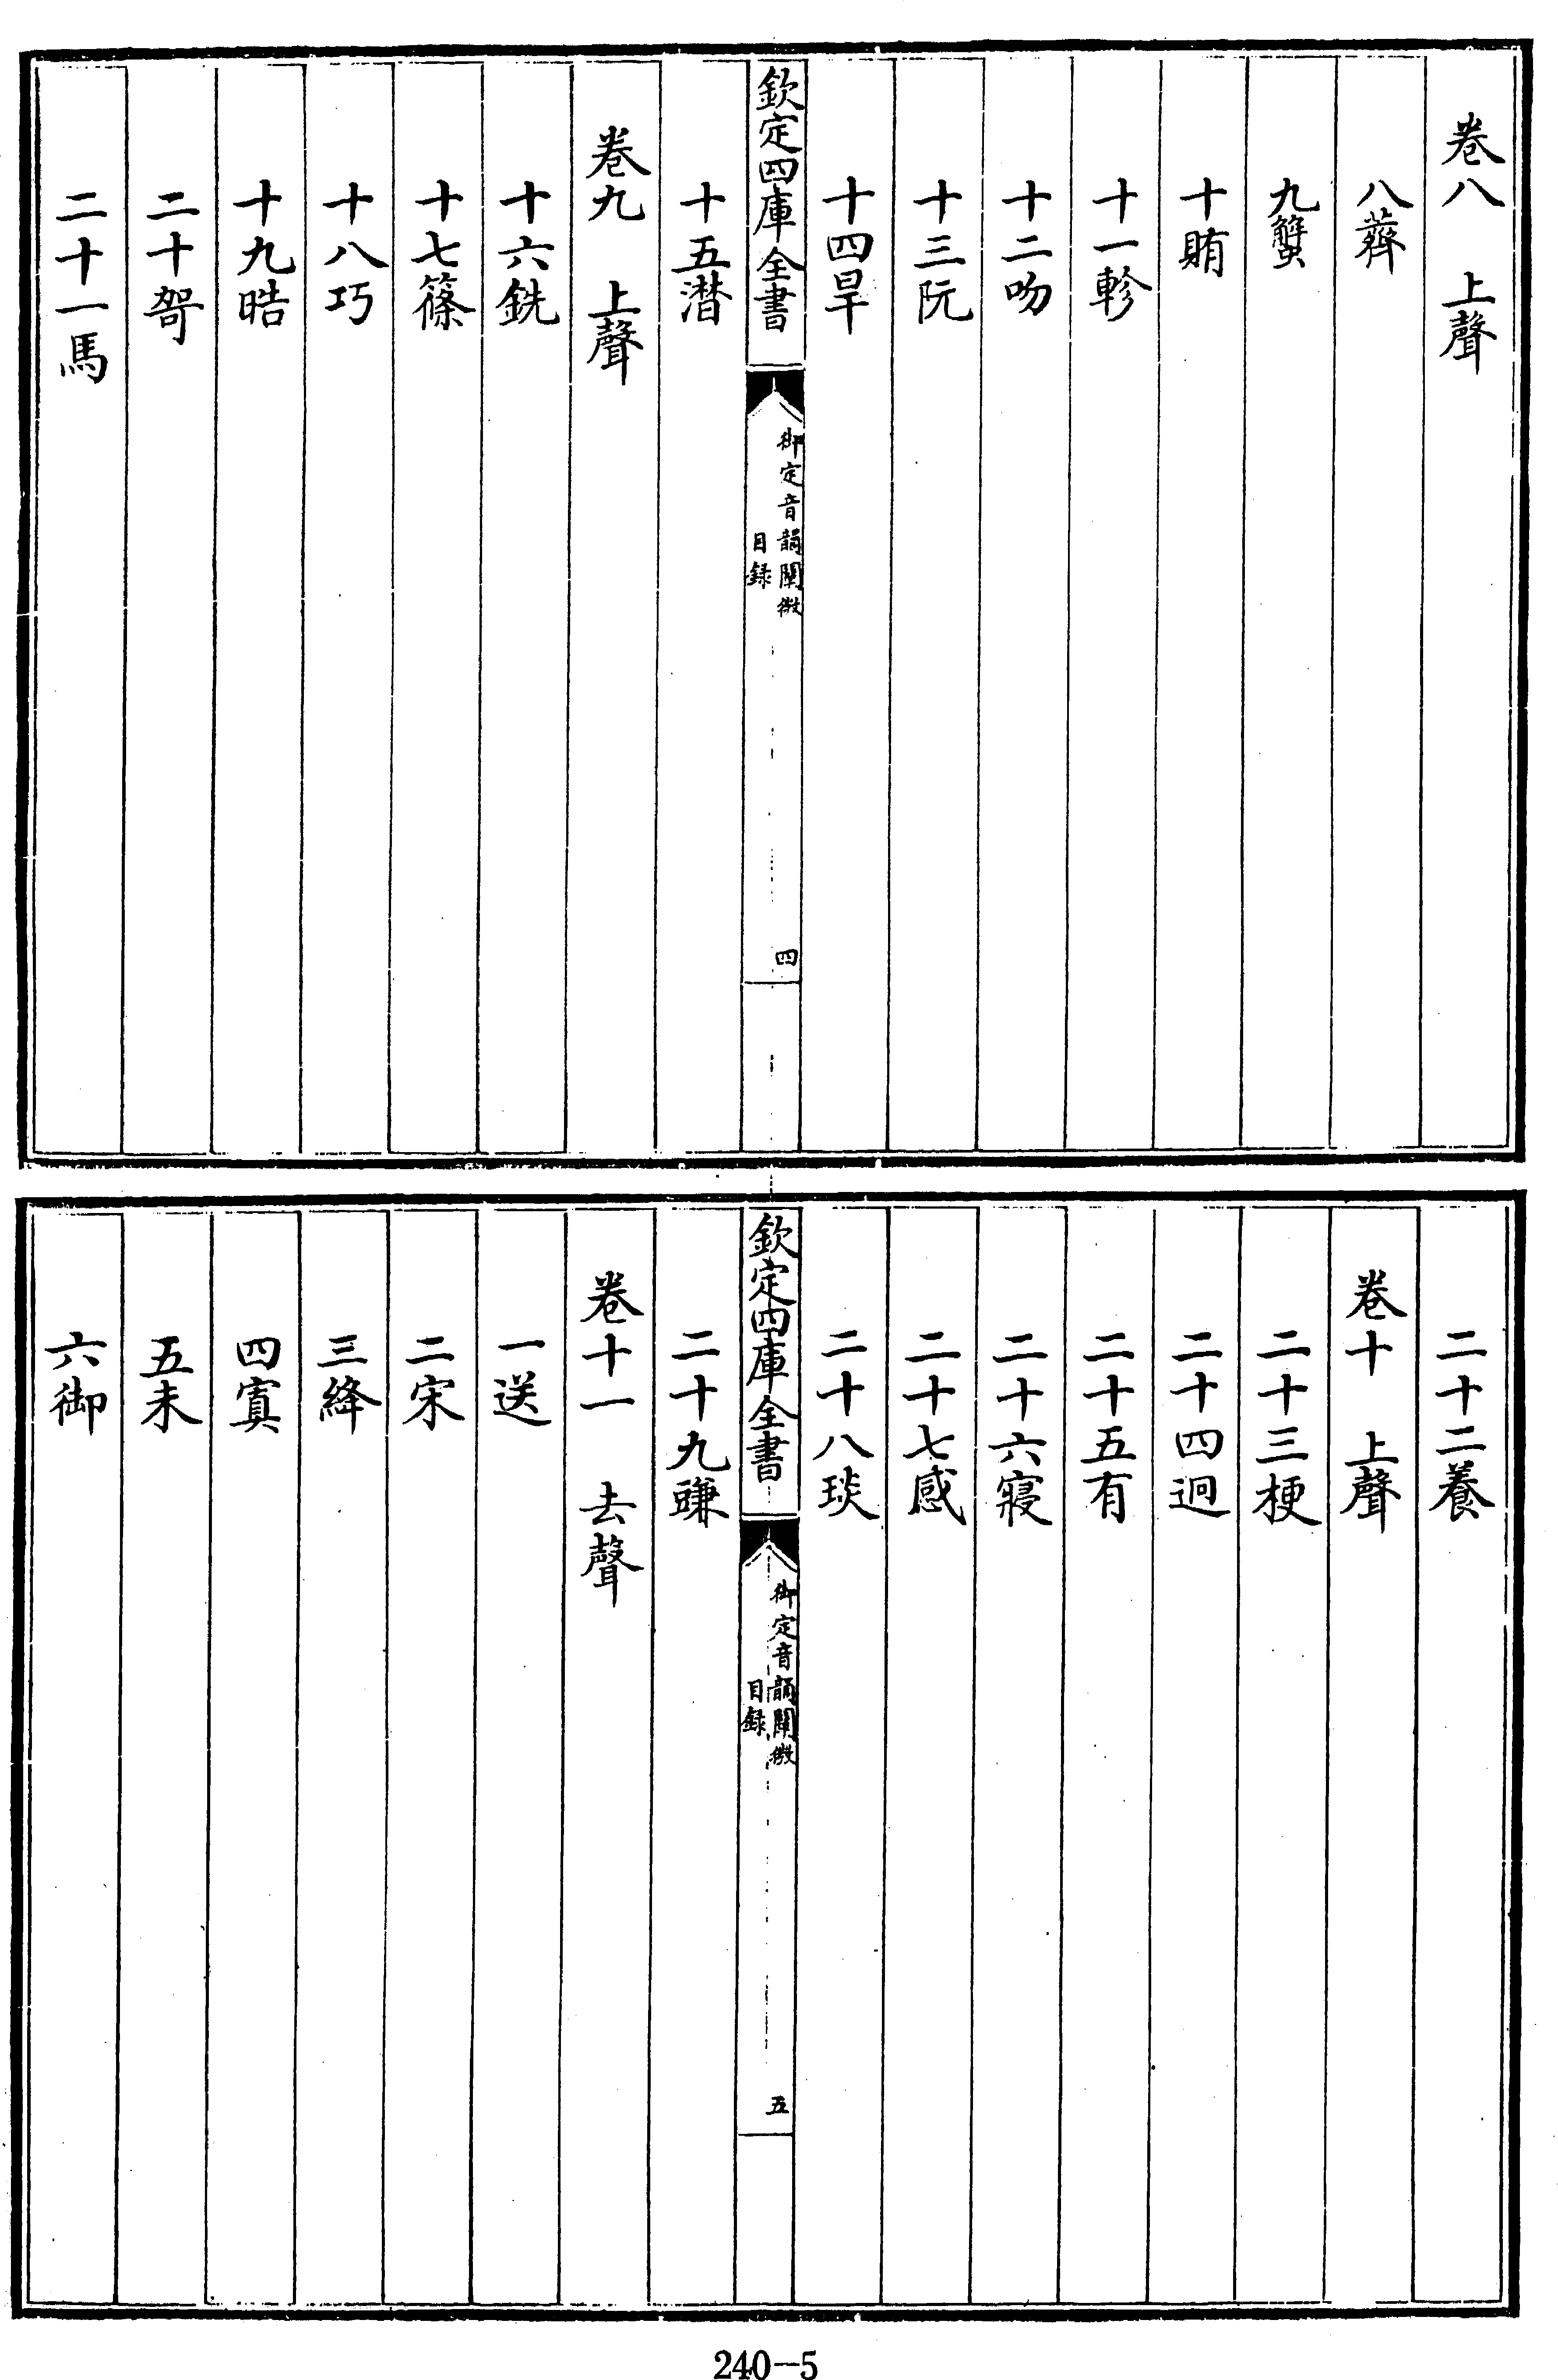 卷八　上聲
八薺
九蟹
十賄
十一軫
十二吻
十三阮
十四旱
欽定四庫全書
御定音韻闡微
目録
四
十五潸
卷九　上聲
十六銑
十七篠
十八巧
十九晧
二十哿
二十一馬
二十二養
卷十　上聲
二十三梗
二十四迥
二十五有
二十六寢
二十七感
二十八琰
欽定四庫全書
御定音韻闡微
目録
五
二十九豏
卷十一　去聲
一送
二宋
三絳
四寘
五未
六御
240-5